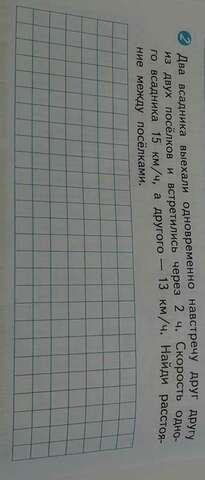 2 Два всадника выехали одновременно навстречу друг другу
из двух посёлков и встретились через 2 ч. Скорость одно-
го всадника 15 км/ч, а другого — 13 км/ч. Найди расстоя-
ние между посёлками.